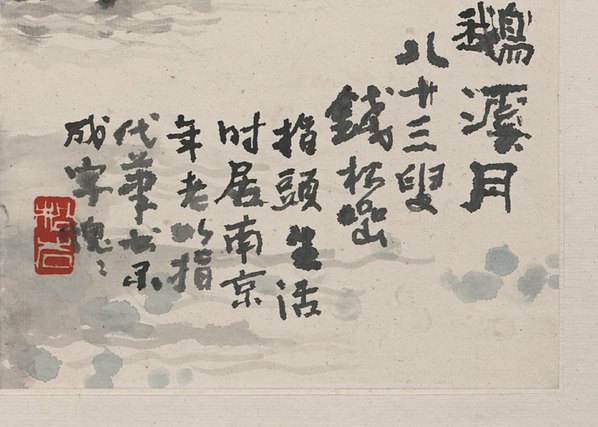 鵝溪月
八十三叟
錢松嵒
指頭生活
时居南京
年老以指
代筆書不
成字愧〻
松石